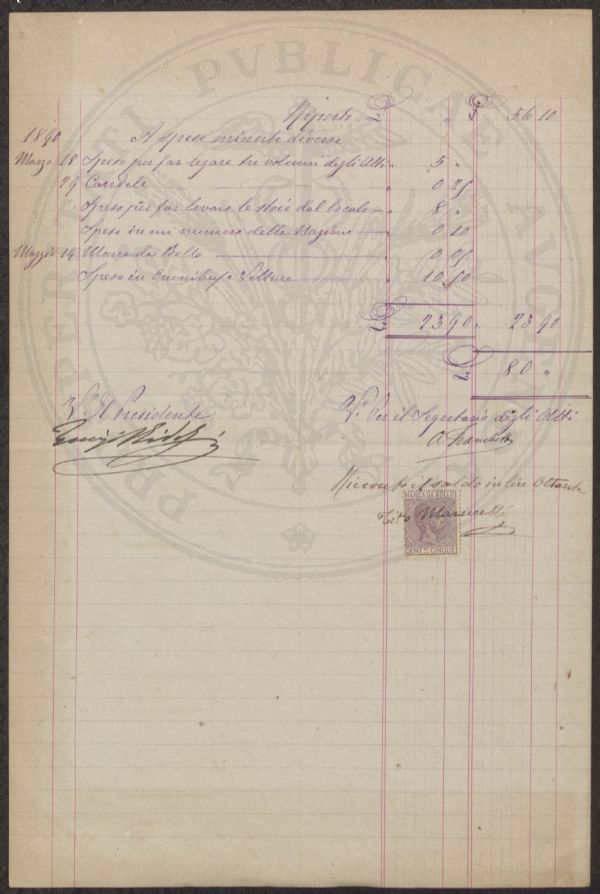 Riporto £ " £ 56 10
1890 A spese minute diverse
Marzo 18 Speso per far legare tre volumi degli Atti " 5 "
29 Candele " 0 25
Speso per far levare le stoie dal locale — " 8 "
Speso in un numero della Nazione — " 0 10
Maggio 14 Marca da Bollo — " 0 05
Speso in Omnibus e Vetture — " 10 50
£ 23 90 " 23 90
£ 80 "
V. Il Presidente
V. Per il Segretario degli Atti
Ricevuto il saldo in lire Ottanta
MARCA DA BOLLO
Tito
CENT. CINQUE